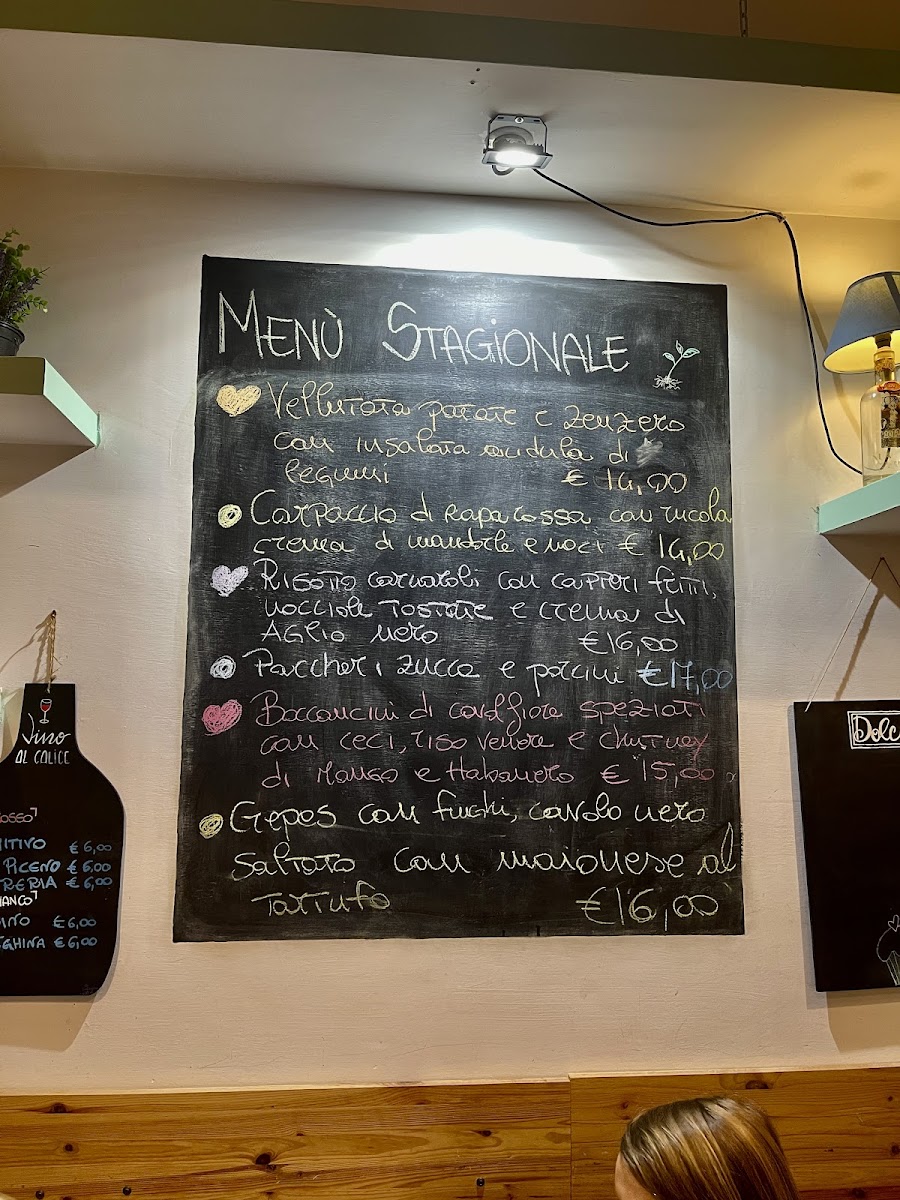 MENÙ STAGIONALE
Vellutata patate e zenzero
con insalata acidula di
legumi € 14,00
Carpaccio di Rapa rossa con rucola
crema di mandorle e noci € 14,00
Risotto carnaroli con capperi fritti,
nocciole TOSTATE e crema di
AGLIO nero €16,00
Paccheri zucca e porcini €17,00
Bocconcini di cavolfiore speziati
con ceci, riso venere e chutney
di Mango e Habanero € 15,00
Gepes con funghi, cavolo nero
saltato con maionese al
TARTUFO €16,00
Vino
AL CALICE
OSSO
ITIVO € 6,00
PICENO € 6,00
RERIA € 6,00
IANCO
INO € 6,00
GHINA € 6,00
Dolc